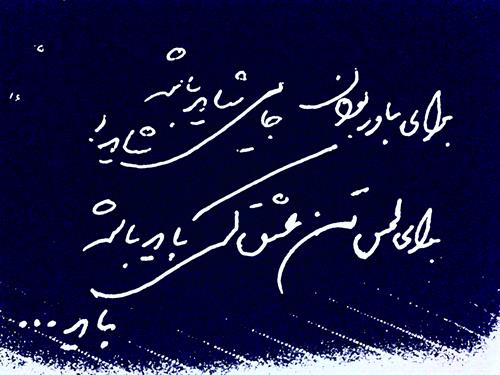 برای باور بودن جایی شاید باشد
شاید!
برای لمس تن عشق کسی باید باشد
باید...